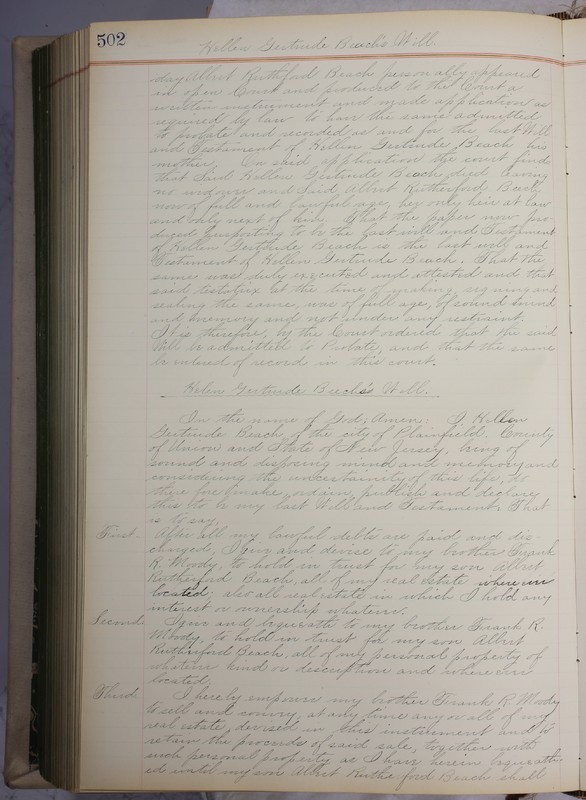 502
Hellen Gertrude Beach's Will
day Albert Ruthford Beach personally appeared
in open Court and produced to the Court a
written instrument and made application as
required by law to have the same admitted
to probate and recorded as and for the last Will
and Testament of Hellen Gertrude Beach his
mother. On said application the court finds
that said Hellen Gertrude Beach died leaving
no widower and said Albert Rutherford Beach
now of full and lawful age, her only heir at law
and only next of kin. That the paper now pro-
duced purporting to be the last will and Testament
of Hellen Gertrude Beach is the last will and
Testament of Hellen Gertrude Beach. That the
same was duly executed and attested and that
said testatrix at the time of making, signing and
sealing the same, was of full age, of sound mind
and memory and not under any restraint.
It is therefore, by the Court ordered that the said
Will be admitted to Probate, and that the same
be entered of record in this court.
Helen Gertrude Beach's Will.
In the name of God, Amen. I Hellen
Gertrude Beach, of the city of Plainfield, County
of Union and State of New Jersey, being of
sound and disposing mind and memory and
considering the uncertainity of this life, do
therefore make, ordain, publish and declare
this to be my last Will and Testament, That
is to say,
First- After all my lawful debts are paid and dis-
charged, I give and devise to my brother Frank
R. Moody, to hold in trust for my son Albert
Rutherford Beach, all of my real estate where ever
located; also all real estate in which I hold any
interest or ownership whatever.
Second I give and bequeath to my brother Frank R.
Moody, to hold in trust for my son Albert
Rutherford Beach, all of my personal property of
whatever kind or description and where ever
located.
Third I hereby empower my brother Frank R. Moody
to sell and convey, at any time any or all of my
real estate devised in this instrument and to
retain the proceeds of said sale, together with
such personal property as I have herein bequeath-
ed until my son Albert Ruther ford Beach shall